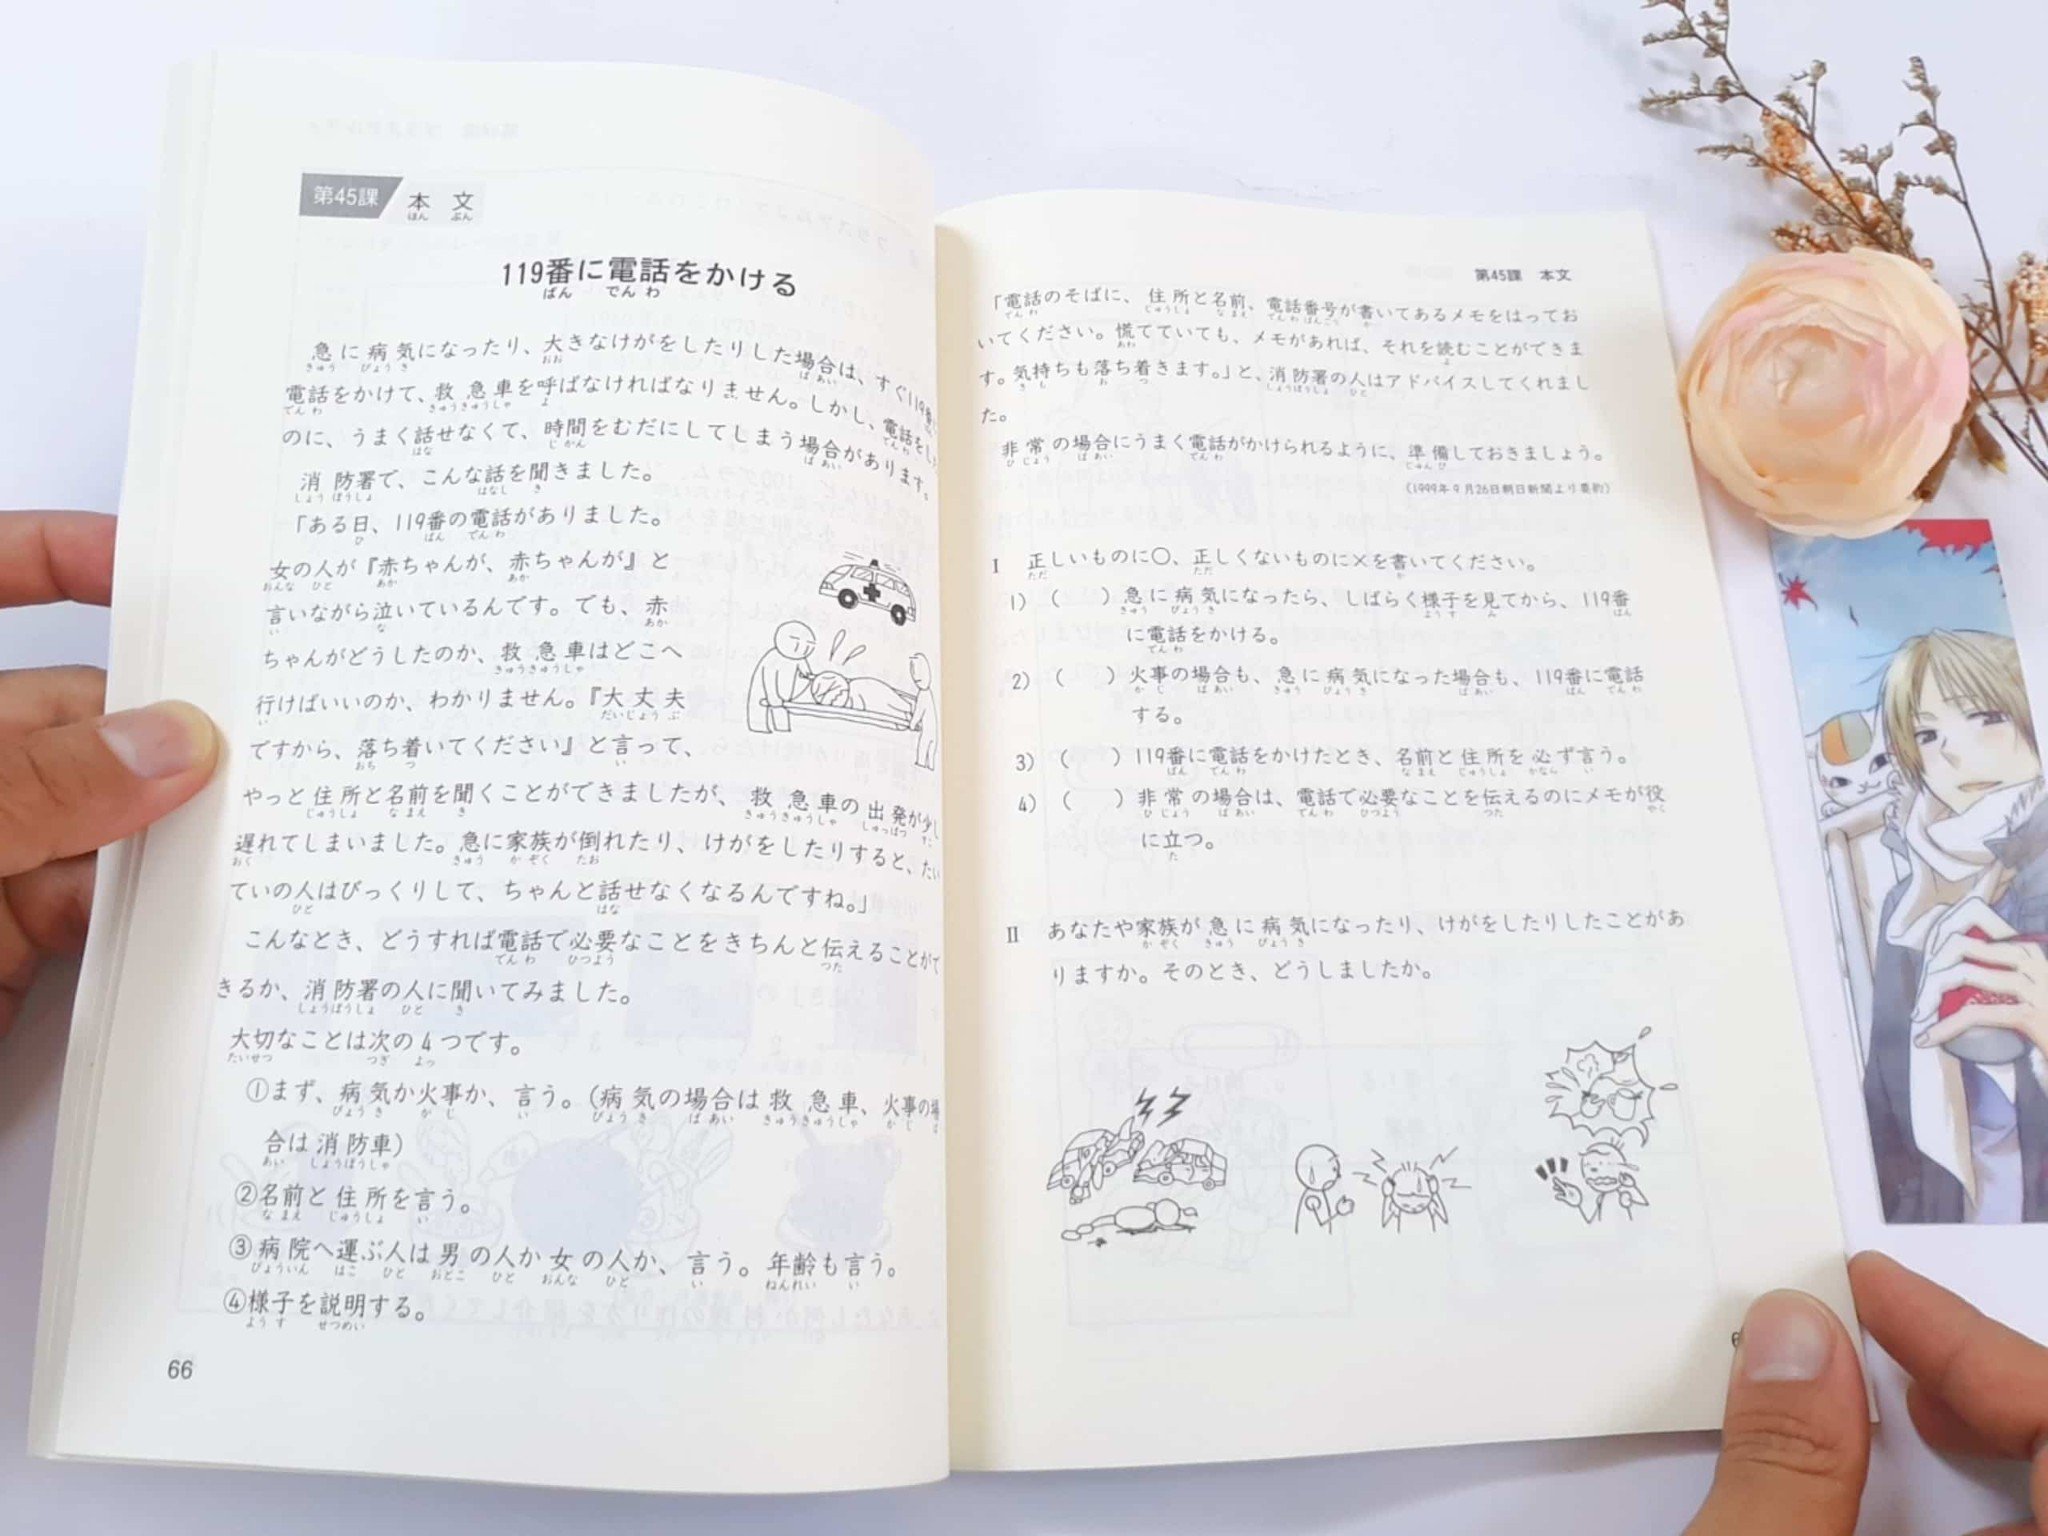 第45課 本文
119番に電話をかける
急に病気になったり、大きなけがをしたりした場合は、すぐ119番
電話をかけて、救急車を呼ばなければなりません。しかし、電話をし
のに、うまく話せなくて、時間をむだにしてしまう場合があります。
消防署で、こんな話を聞きました。
「ある日、119番の電話がありました。
女の人が『赤ちゃんが、赤ちゃんが』と
言いながら泣いているんです。でも、赤
ちゃんがどうしたのか、救急車はどこへ
行けばいいのか、わかりません。『大丈夫
ですから、落ち着いてください』と言って、
やっと住所と名前を聞くことができましたが、救急車の出発が少し
遅れてしまいました。急に家族が倒れたり、けがをしたりすると、たい
ていの人はびっくりして、ちゃんと話せなくなるんですね。」
こんなとき、どうすれば電話で必要なことをきちんと伝えることがで
きるか、消防署の人に聞いてみました。
大切なことは次の4つです。
①まず、病気か火事か、言う。(病気の場合は救急車、火事の場
合は消防車)
②名前と住所を言う。
③病院へ運ぶ人は男の人か女の人か、言う。年齢も言う。
④様子を説明する。
66
第45課 本文
「電話のそばに、住所と名前、電話番号が書いてあるメモをはってお
いてください。慌てていても、メモがあれば、それを読むことができま
す。気持ちも落ち着きます。」と、消防署の人はアドバイスしてくれまし
た。
非常の場合にうまく電話がかけられるように、準備しておきましょう。
(1999年9月26日朝日新聞より要約)
Ⅰ 正しいものに○、正しくないものに×を書いてください。
1) ( ) 急に病気になったら、しばらく様子を見てから、119番
に電話をかける。
2) ( ) 火事の場合も、急に病気になった場合も、119番に電話
する。
3) ( ) 119番に電話をかけたとき、名前と住所を必ず言う。
4) ( ) 非常の場合は、電話で必要なことを伝えるのにメモが役
に立つ。
Ⅱ あなたや家族が急に病気になったり、けがをしたりしたことがあ
りますか。そのとき、どうしましたか。